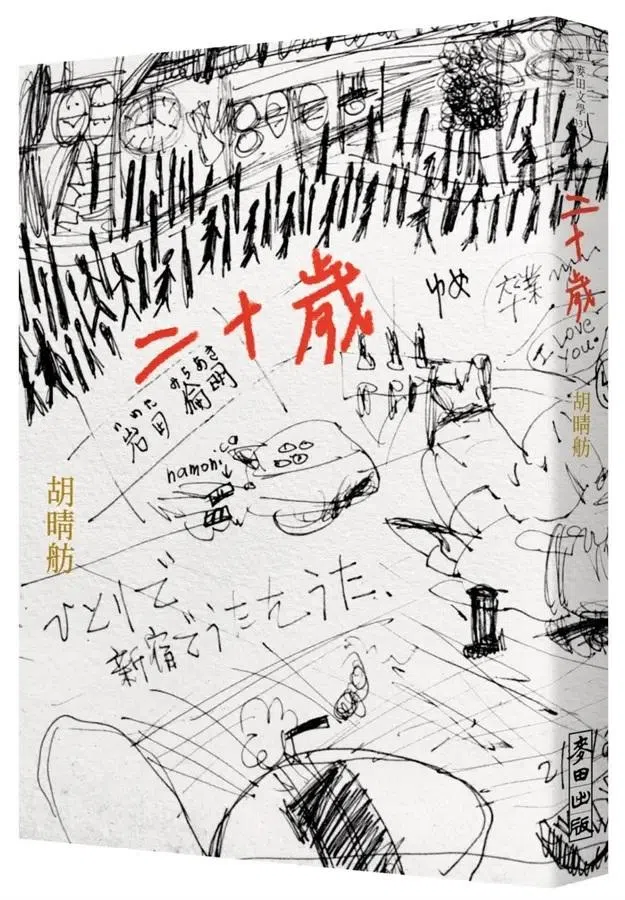 二十歲
ゆめ
卒業
みちあき
岩田 倫明
胡晴舫
ひとりで
新宿でうたをうた、
麥田文學
二十歲
I love
you.
胡晴舫
麥田出版